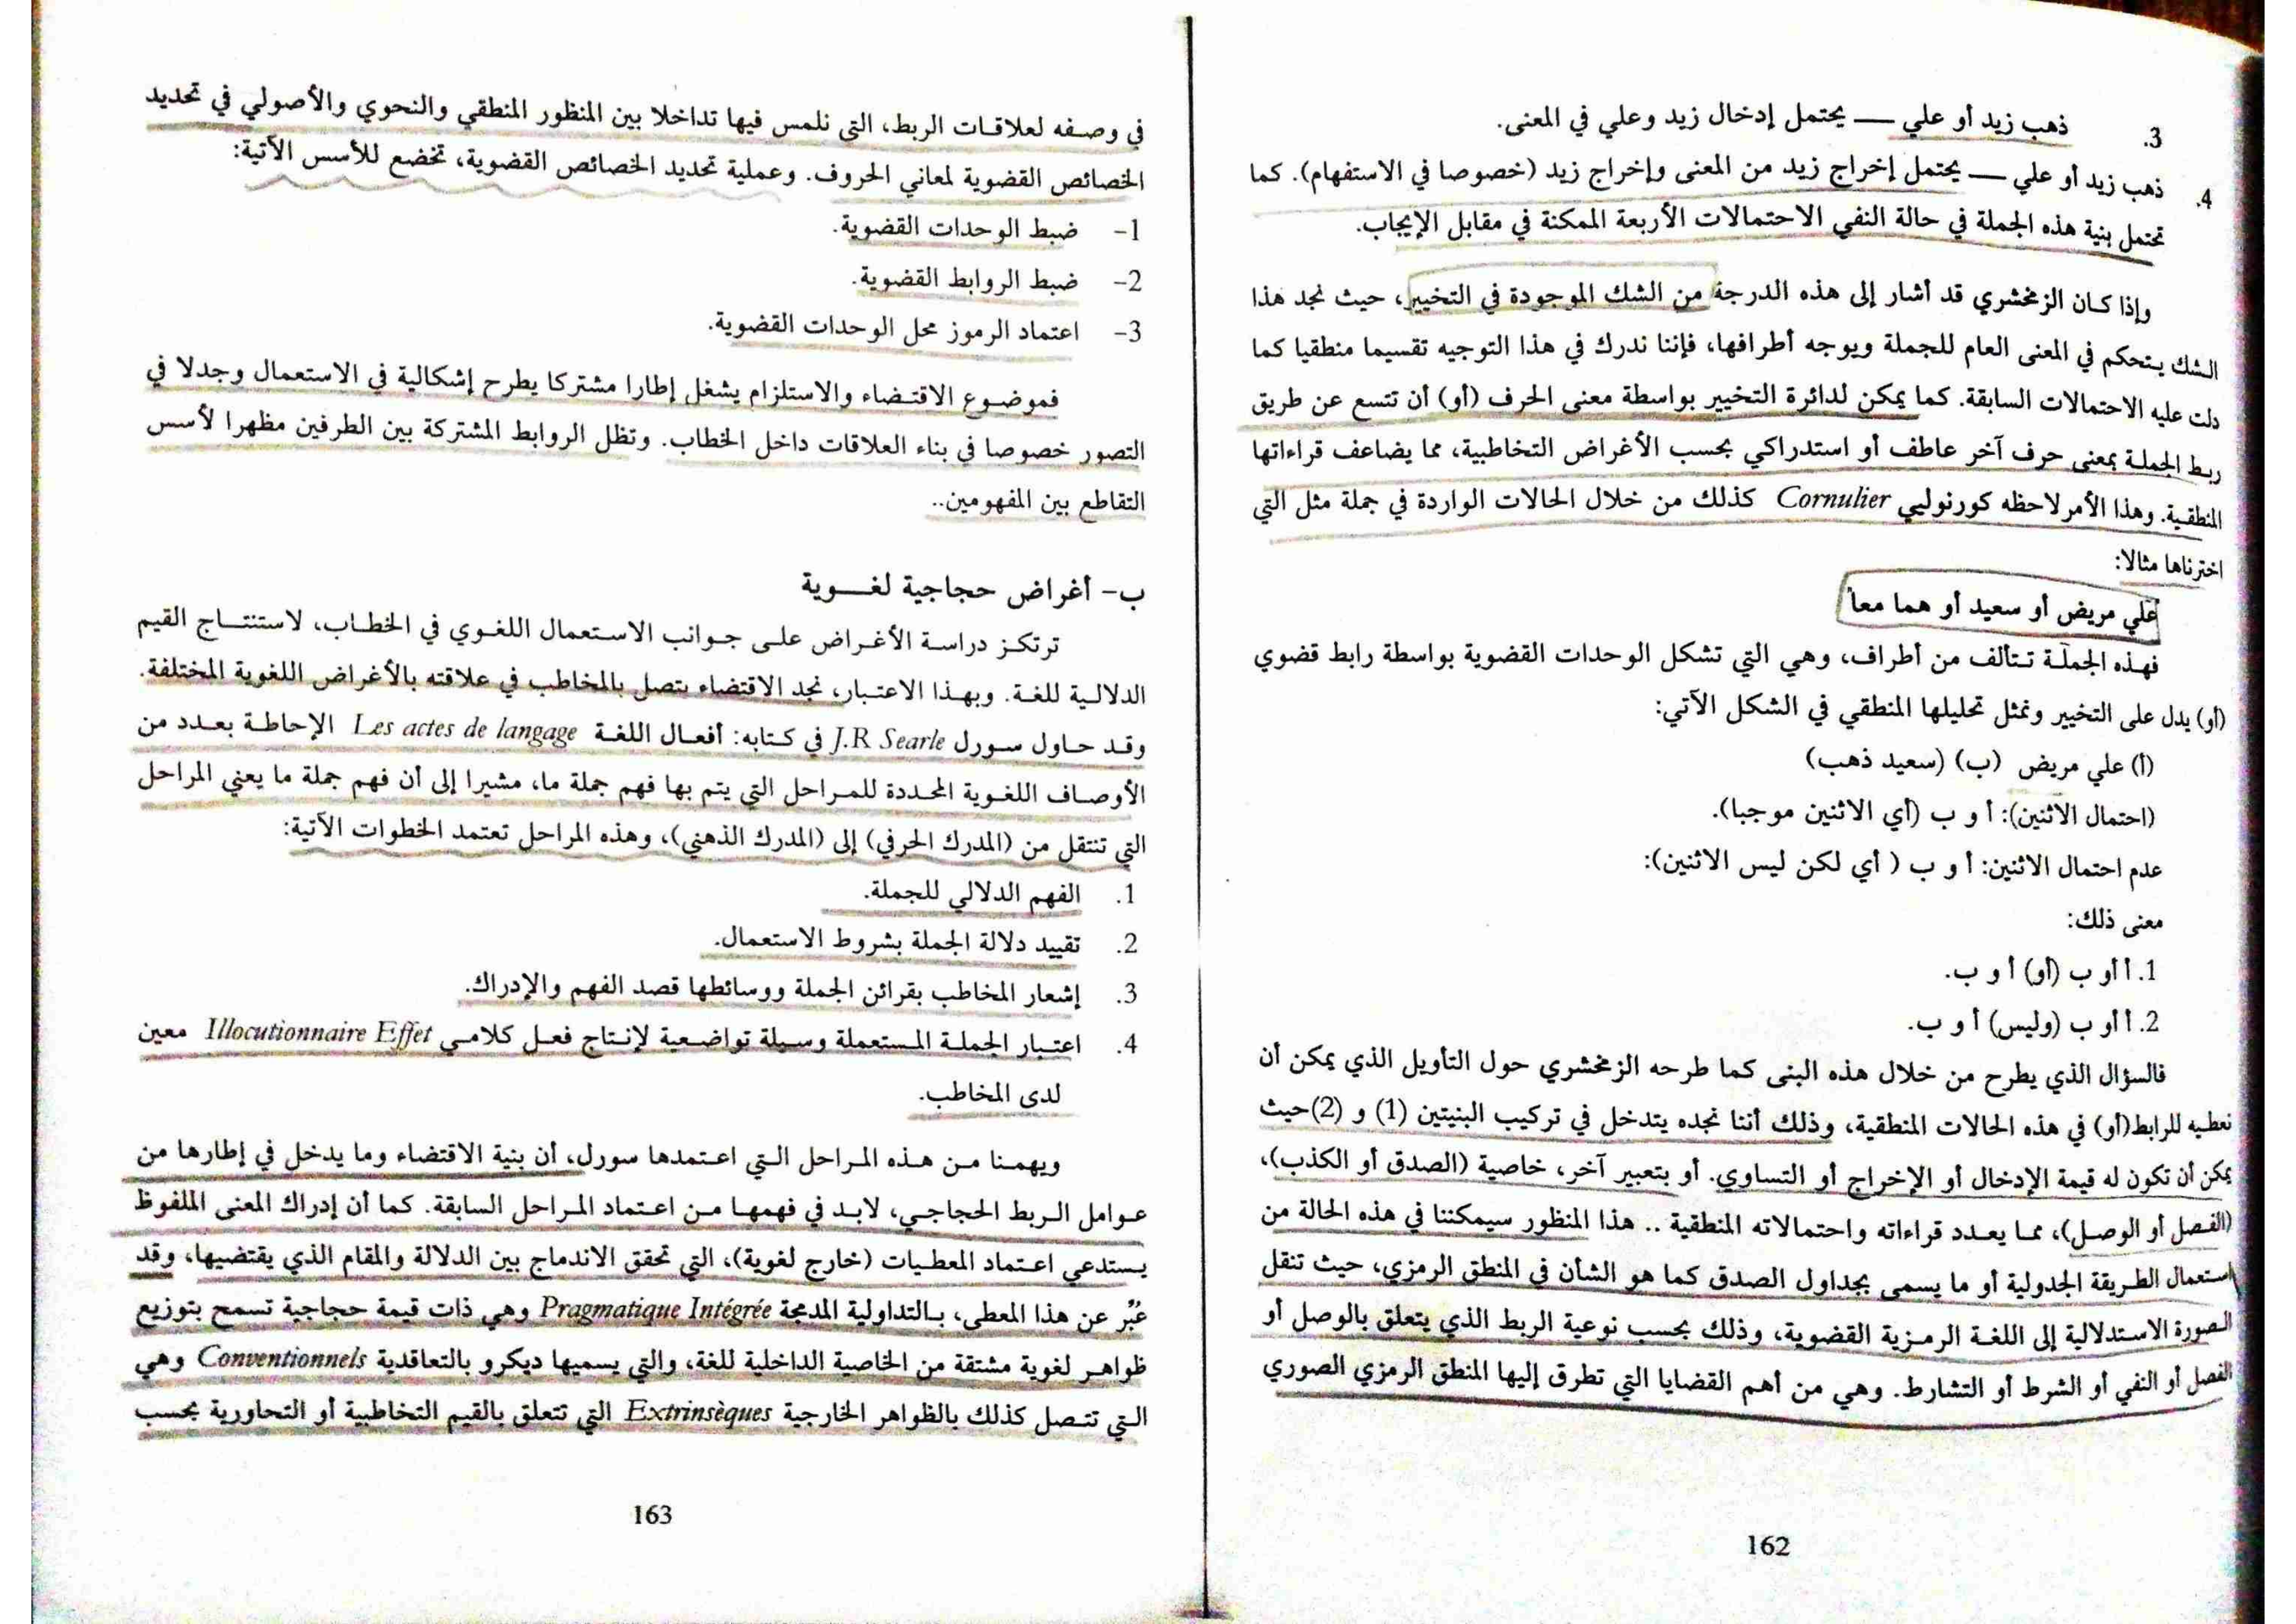 3. ذهب زيد أو علي — يحتمل إدخال زيد وعلي في المعنى.
4. ذهب زيد أو علي — يحتمل إخراج زيد من المعنى وإخراج زيد (خصوصا في الاستفهام). كما
تحتمل بنية هذه الجملة في حالة النفي الاحتمالات الأربعة الممكنة في مقابل الإيجاب.
وإذا كان الزمخشري قد أشار إلى هذه الدرجة من الشك الموجودة في التخيير، حيث نجد هذا
الشك يتحكم في المعنى العام للجملة ويوجه أطرافها، فإننا ندرك في هذا التوجيه تقسيما منطقيا كما
دلت عليه الاحتمالات السابقة. كما يمكن لدائرة التخيير بواسطة معنى الحرف (أو) أن تتسع عن طريق
ربط الجملة بمعنى حرف آخر عاطف أو استدراكي بحسب الأغراض التخاطبية، مما يضاعف قراءاتها
المنطقية. وهذا الأمر لاحظه كورنوليي Cornulier كذلك من خلال الحالات الواردة في جملة مثل التي
اخترناها مثالا:
علي مريض أو سعيد أو هما معا
فهذه الجملة تتألف من أطراف، وهي التي تشكل الوحدات القضوية بواسطة رابط قضوي
(أو) يدل على التخيير ونمثل تحليلها المنطقي في الشكل الآتي:
(أ) علي مريض (ب) (سعيد ذهب)
(احتمال الاثنين): أ و ب (أي الاثنين موجبا).
عدم احتمال الاثنين: أ و ب ( أي لكن ليس الاثنين):
معنى ذلك:
1. أ أو ب (أو) أ و ب.
2. أ أو ب (وليس) أ و ب.
فالسؤال الذي يطرح من خلال هذه البنى كما طرحه الزمخشري حول التأويل الذي يمكن أن
نعطيه للرابط(أو) في هذه الحالات المنطقية، وذلك أننا نجده يتدخل في تركيب البنيتين (1) و (2)حيث
يمكن أن تكون له قيمة الإدخال أو الإخراج أو التساوي. أو بتعبير آخر، خاصية (الصدق أو الكذب)،
(الفصل أو الوصل)، مما يعدد قراءاته واحتمالاته المنطقية .. هذا المنظور سيمكننا في هذه الحالة من
استعمال الطريقة الجدولية أو ما يسمى بجداول الصدق كما هو الشأن في المنطق الرمزي، حيث تنقل
الصورة الاستدلالية إلى اللغة الرمزية القضوية، وذلك بحسب نوعية الربط الذي يتعلق بالوصل أو
الفصل أو النفي أو الشرط أو التشارط. وهي من أهم القضايا التي تطرق إليها المنطق الرمزي الصوري
162
في وصفه لعلاقات الربط، التي نلمس فيها تداخلا بين المنظور المنطقي والنحوي والأصولي في تحديد
الخصائص القضوية لمعاني الحروف. وعملية تحديد الخصائص القضوية، تخضع للأسس الآتية:
1- ضبط الوحدات القضوية.
2- ضبط الروابط القضوية.
3- اعتماد الرموز محل الوحدات القضوية.
فموضوع الاقتضاء والاستلزام يشغل إطارا مشتركا يطرح إشكالية في الاستعمال وجدلا في
التصور خصوصا في بناء العلاقات داخل الخطاب. وتظل الروابط المشتركة بين الطرفين مظهرا لأسس
التقاطع بين المفهومين..
ب- أغراض حجاجية لغوية
ترتكز دراسة الأغراض على جوانب الاستعمال اللغوي في الخطاب، لاستنتاج القيم
الدلالية للغة. وبهذا الاعتبار، نجد الاقتضاء يتصل بالمخاطب في علاقته بالأغراض اللغوية المختلفة.
وقد حاول سورل J.R Searle في كتابه: أفعال اللغة Les actes de langage الإحاطة بعدد من
الأوصاف اللغوية المحددة للمراحل التي يتم بها فهم جملة ما، مشيرا إلى أن فهم جملة ما يعني المراحل
التي تنتقل من (المدرك الحرفي) إلى (المدرك الذهني)، وهذه المراحل تعتمد الخطوات الآتية:
1. الفهم الدلالي للجملة.
2. تقييد دلالة الجملة بشروط الاستعمال.
3. إشعار المخاطب بقرائن الجملة ووسائطها قصد الفهم والإدراك.
4. اعتبار الجملة المستعملة وسيلة تواضعية لإنتاج فعل كلامي Illocutionnaire Effet معين
لدى المخاطب.
ويهمنا من هذه المراحل التي اعتمدها سورل، أن بنية الاقتضاء وما يدخل في إطارها من
عوامل الربط الحجاجي، لابد في فهمها من اعتماد المراحل السابقة. كما أن إدراك المعنى الملفوظ
يستدعي اعتماد المعطيات (خارج لغوية)، التي تحقق الاندماج بين الدلالة والمقام الذي يقتضيها، وقد
عُبِّر عن هذا المعطى، بالتداولية المدمجة Pragmatique Intégrée وهي ذات قيمة حجاجية تسمح بتوزيع
ظواهر لغوية مشتقة من الخاصية الداخلية للغة، والتي يسميها ديكرو بالتعاقدية Conventionnels وهي
التي تتصل كذلك بالظواهر الخارجية Extrinsèques التي تتعلق بالقيم التخاطبية أو التحاورية بحسب
163